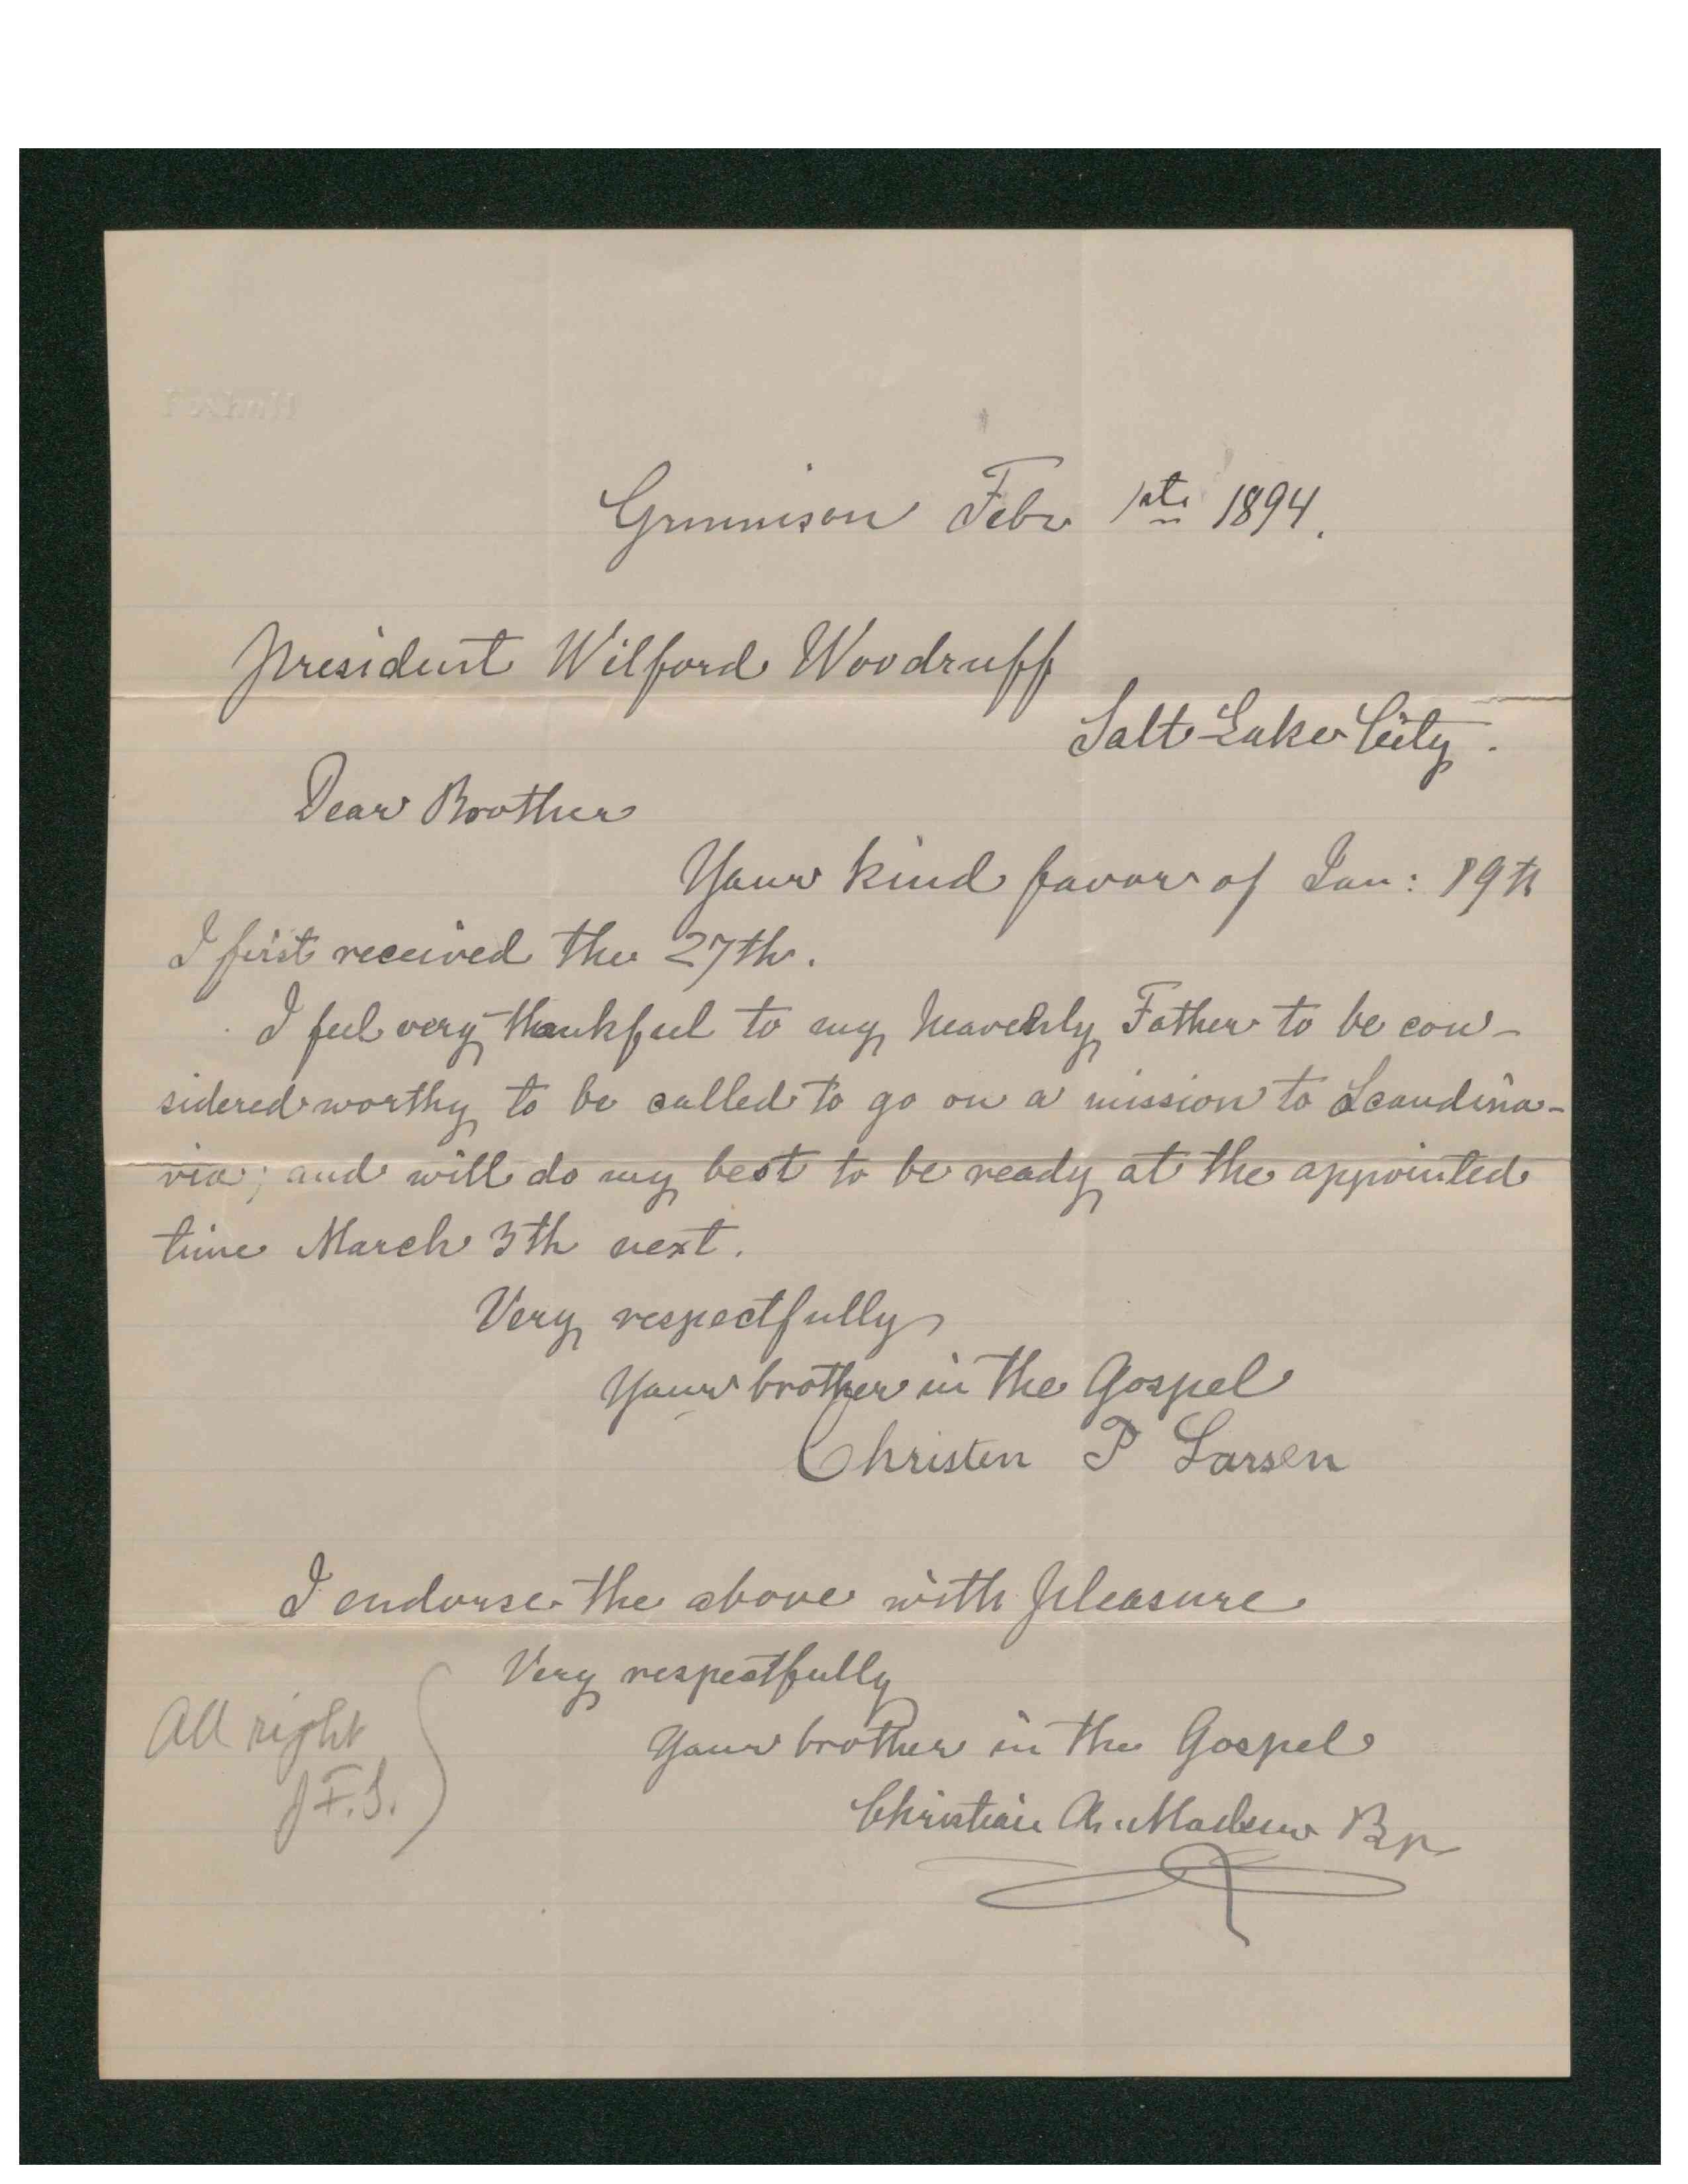 Gunnison Febr 1st 1894.
President Wilford Woodruff
Salt Lake City.
Dear Brother
Your kind favor of Jan: 19th
I first received the 27th.
I feel very thankful to my heavenly Father to be con-
sidered worthy to be called to go on a mission to Scandina-
via; and will do my best to be ready at the appointed
time March 3th next.
Very respectfully
Your brother in the Gospel
Christen P Larsen
I endorse the above with pleasure
Very respectfully
Your brother in the Gospel
Christian A. Madsen Bp
All right
J.F.S.